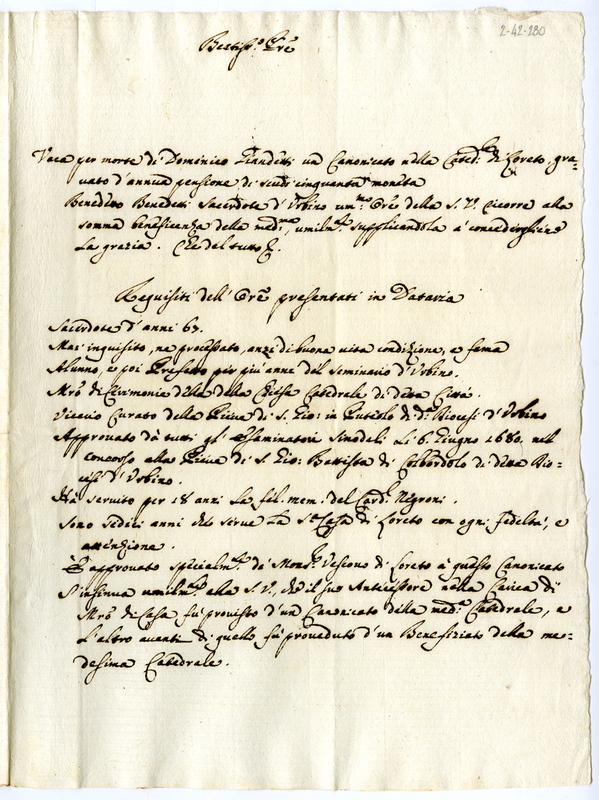 2-42-280
Beatiss.o Pre
Vaca per morte di Domenico un Canonicato nella Cated.le di Loreto, gra-
vato d'annua pensione di scudi cinquanta moneta
Benedetto Benedetti Sacerdote d'Urbino um.mo Ore della S. V. ricorre alla
somma beneficenza della med.ma, umilm.te supplicandola à concedergliene
la grazia. Che del tutto &.
Requisiti dell'Ore presentati in Dataria
Sacerdote d'anni 63.
Mai inquisito, ne processato, anzi di buona vita condizione, e fama
Alunno, e poi Prefetto per più anni del Seminario d'Urbino.
Mro di Cerimonie della Chiesa Catedrale di detta Città.
Vicario Curato della Pieve di S. Gio: in di d.a Diocesi d'Urbino
Approvato da tutti gl'Esaminatori Sinodali li 6. Giugno 1680. nell
concorso alla Pieve di S. Gio: Battista di Colbordolo di detta Dio-
cesi d'Urbino.
Hà servito per 18 anni la fel. mem. del Card.l Negroni.
Sono sedici anni che serve la S.a Casa di Loreto con ogni fedeltà, e
attenzione.
È approvato specialm.te da Mons.r Vescovo di Loreto à questo Canonicato
S'insinua umilm.te alla S. V., che il suo Antecessore nella Carica di
Mro di Casa fù provisto d'un Canonicato della med.ma Catedrale, e
l'altro avanti di quello fù proveduto d'un Benefiziato della me-
desima Catedrale.